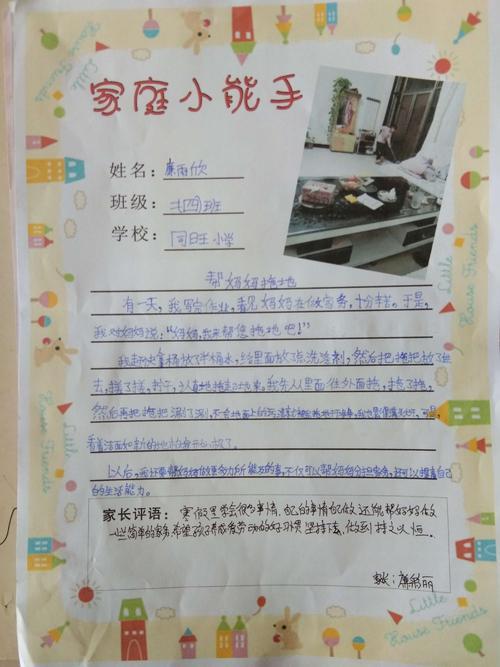 家庭小能手
姓名：廉雨欣
班级：二(四)班
学校：同旺小学
帮妈妈拖地
有一天，我写完作业，看见妈妈在做家务，十分辛苦。于是，
我对妈妈说："妈妈，我来帮您拖地吧！"
我赶快去拿桶放了半桶水，给里面放点洗洁剂，然后把拖把放了进
去，搓了搓，拧干，认真地拖起地来。我先从里面往外面拖，拖了拖，
然后再把拖把涮了涮，
看着洁面如新的地板我开心极了。
以后，我还要帮妈妈做更多力所能及的事，不仅可以帮妈妈分担家务，还可以提高自己
的生活能力。
家长评语：寒假里学会很多事情，自己的事情自己做，还能帮妈妈做
一些简单的家务，希望孩子养成爱劳动的好习惯，坚持下去，做到持之以恒。
家长：廉
Little House Friends
Little
House Friends
Little
House Friends